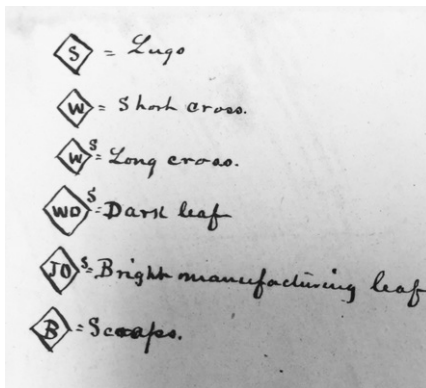 S = Lugs
W = Short cross.
W S = Long cross.
WD S = Dark leaf
JO S = Bright manufacturing leaf
B = Scraps.